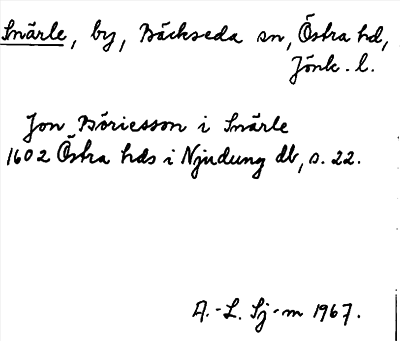 Snärle, by, Bäckseda sn, Östra hd,
Jönk. l.
Jon Böriesson i Snärle
1602 Östra hds i Njudung db, s. 22.
A.-L. Sj-m 1967.